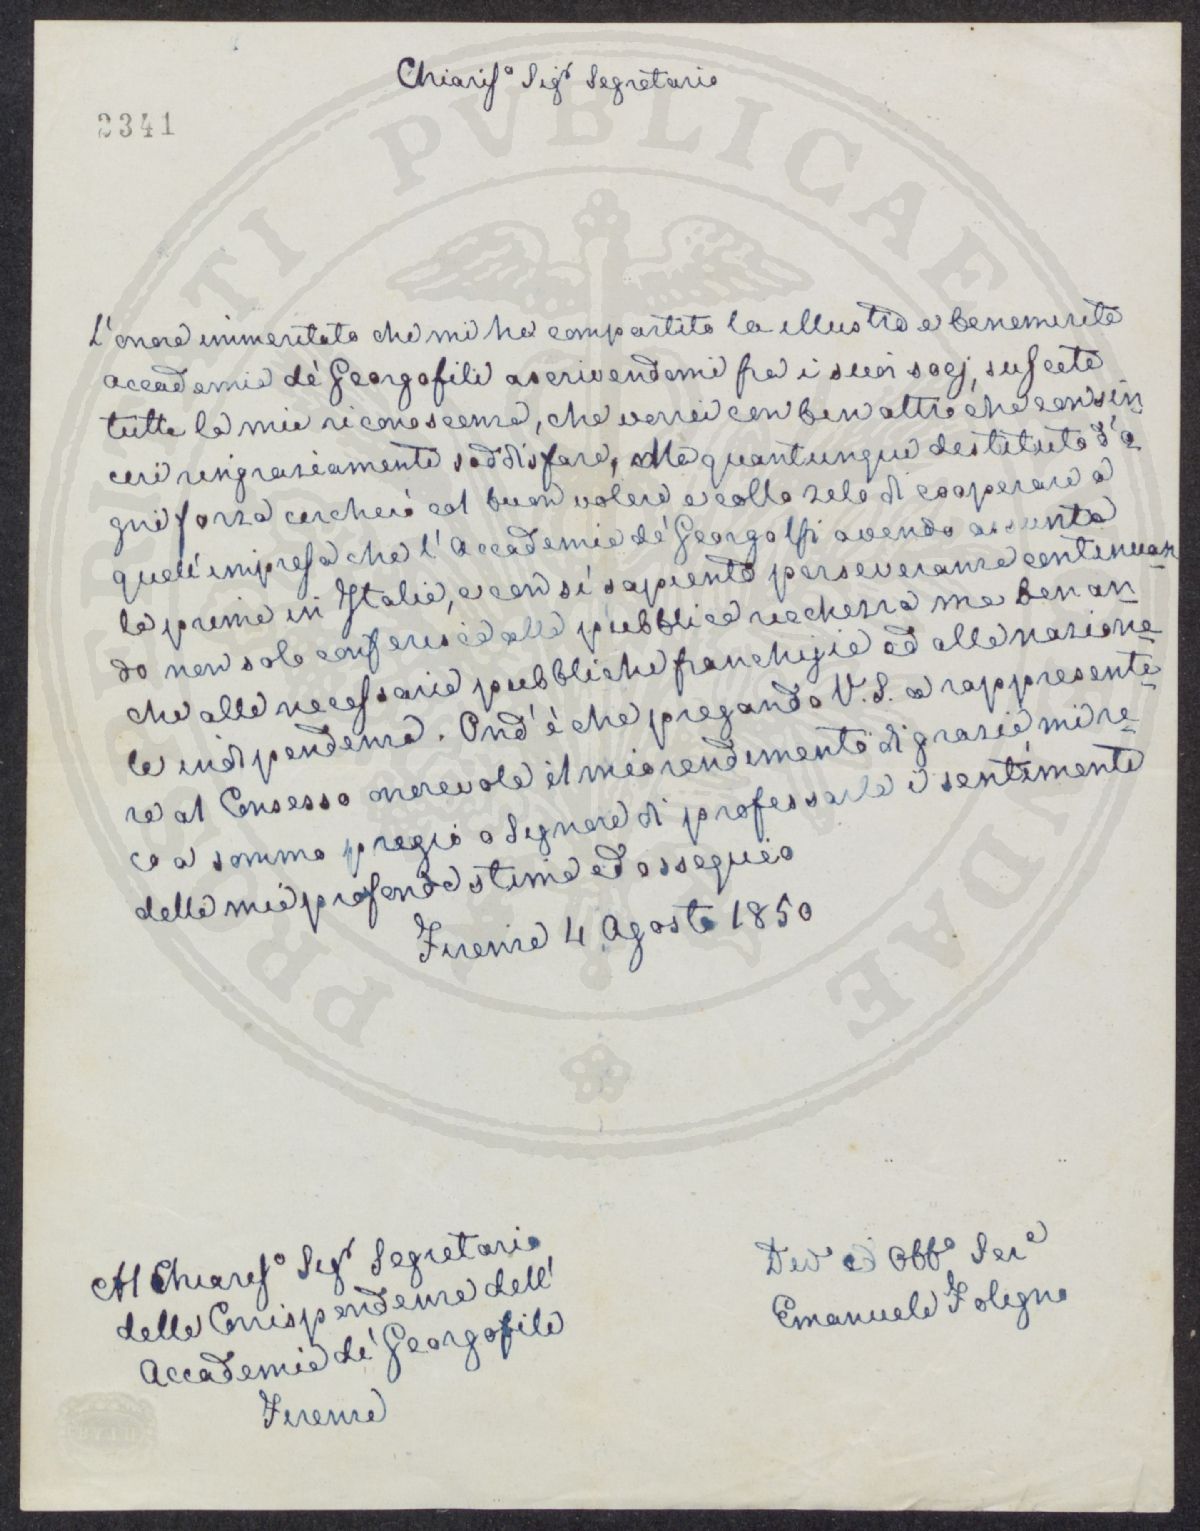 Chiariss.º Sigʳ Segretario
2341
L'onore immeritato che mi ha compartito la illustre e benemerita
accademia dé Georgofili ascrivendomi fra i suoi socj, suscita
tutta la mia riconoscenza, che vorrei con ben altro che con sin-
ceri ringraziamenti soddisfare, Ma quantunque destituto d'o-
gni forza cercherò col buon volere e collo zelo di cooperare a
quell'impresa che l'Accademia dé Georgolfi avendo assunta
la prima in Italia, e con sì sapiente perseveranza continuan-
do non solo conferisce alla pubblica ricchezza ma ben an-
che alle necessarie pubbliche franchigie ed alla naziona-
le indipendenza. Ond'è che pregando V.S. a rappresenta-
re al Consesso onorevole il mio rendimento di grazie mi re-
co a sommo pregio o Signore di professarle i sentimenti
della mia profonda stima ed ossequio
Firenze 4 Agosto 1850
Al Chiariss.º Sigʳ Segretario
delle Corrispondenze dell'
Accademia dé Georgofili
Firenze
Devº ed Obbº Serº
Emanuele Fologno
PROSPERITATI PVBLICAE AVGENDAE